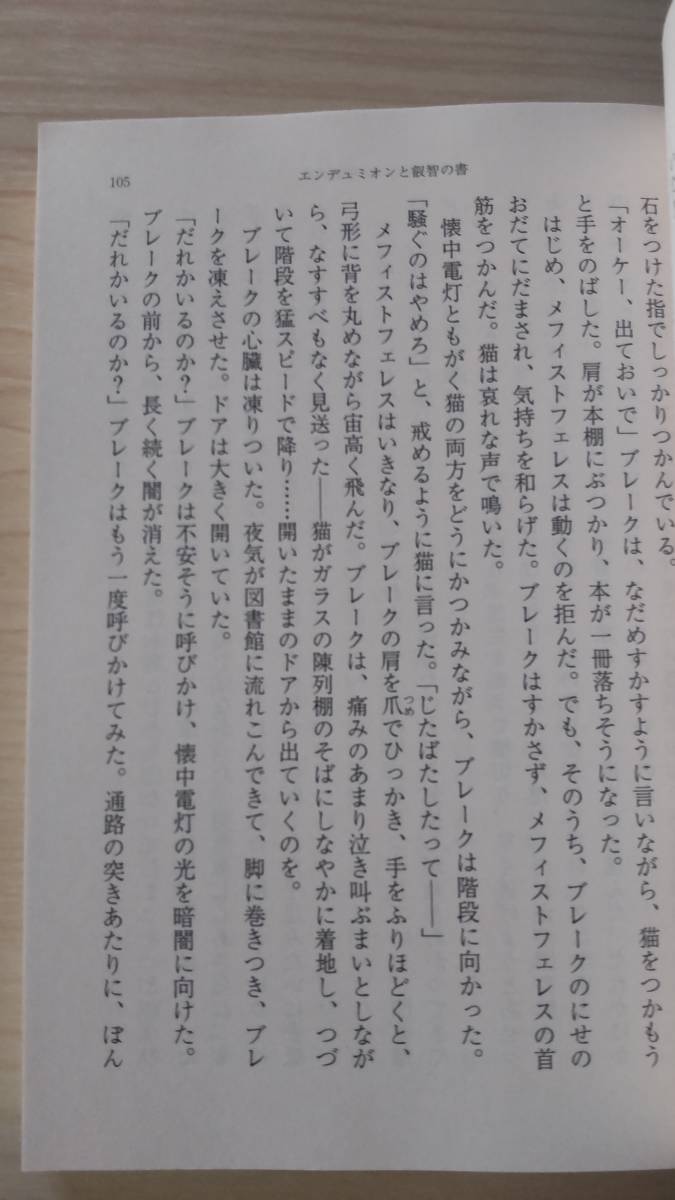 105
エンデュミオンと叡智の書
石をつけた指でしっかりつかんでいる。
「オーケー、出ておいで」ブレークは、なだめすかすように言いながら、猫をつかもう
と手をのばした。肩が本棚にぶつかり、本が一冊落ちそうになった。
はじめ、メフィストフェレスは動くのを拒んだ。でも、そのうち、ブレークのにせの
おだてにだまされ、気持ちを和らげた。ブレークはすかさず、メフィストフェレスの首
筋をつかんだ。猫は哀れな声で鳴いた。
懐中電灯ともがく猫の両方をどうにかつかみながら、ブレークは階段に向かった。
「騒ぐのはやめろ」と、戒めるように猫に言った。「じたばたしたって――」
メフィストフェレスはいきなり、ブレークの肩を爪でひっかき、手をふりほどくと、
つめ
弓形に背を丸めながら宙高く飛んだ。ブレークは、痛みのあまり泣き叫ぶまいとしなが
ら、なすすべもなく見送った――猫がガラスの陳列棚のそばにしなやかに着地し、つづ
いて階段を猛スピードで降り……開いたままのドアから出ていくのを。
ブレークの心臓は凍りついた。夜気が図書館に流れこんできて、脚に巻きつき、ブレ
ークを凍えさせた。ドアは大きく開いていた。
「だれかいるのか？」ブレークは不安そうに呼びかけ、懐中電灯の光を暗闇に向けた。
ブレークの前から、長く続く闇が消えた。
「だれかいるのか？」ブレークはもう一度呼びかけてみた。通路の突きあたりに、ぽん